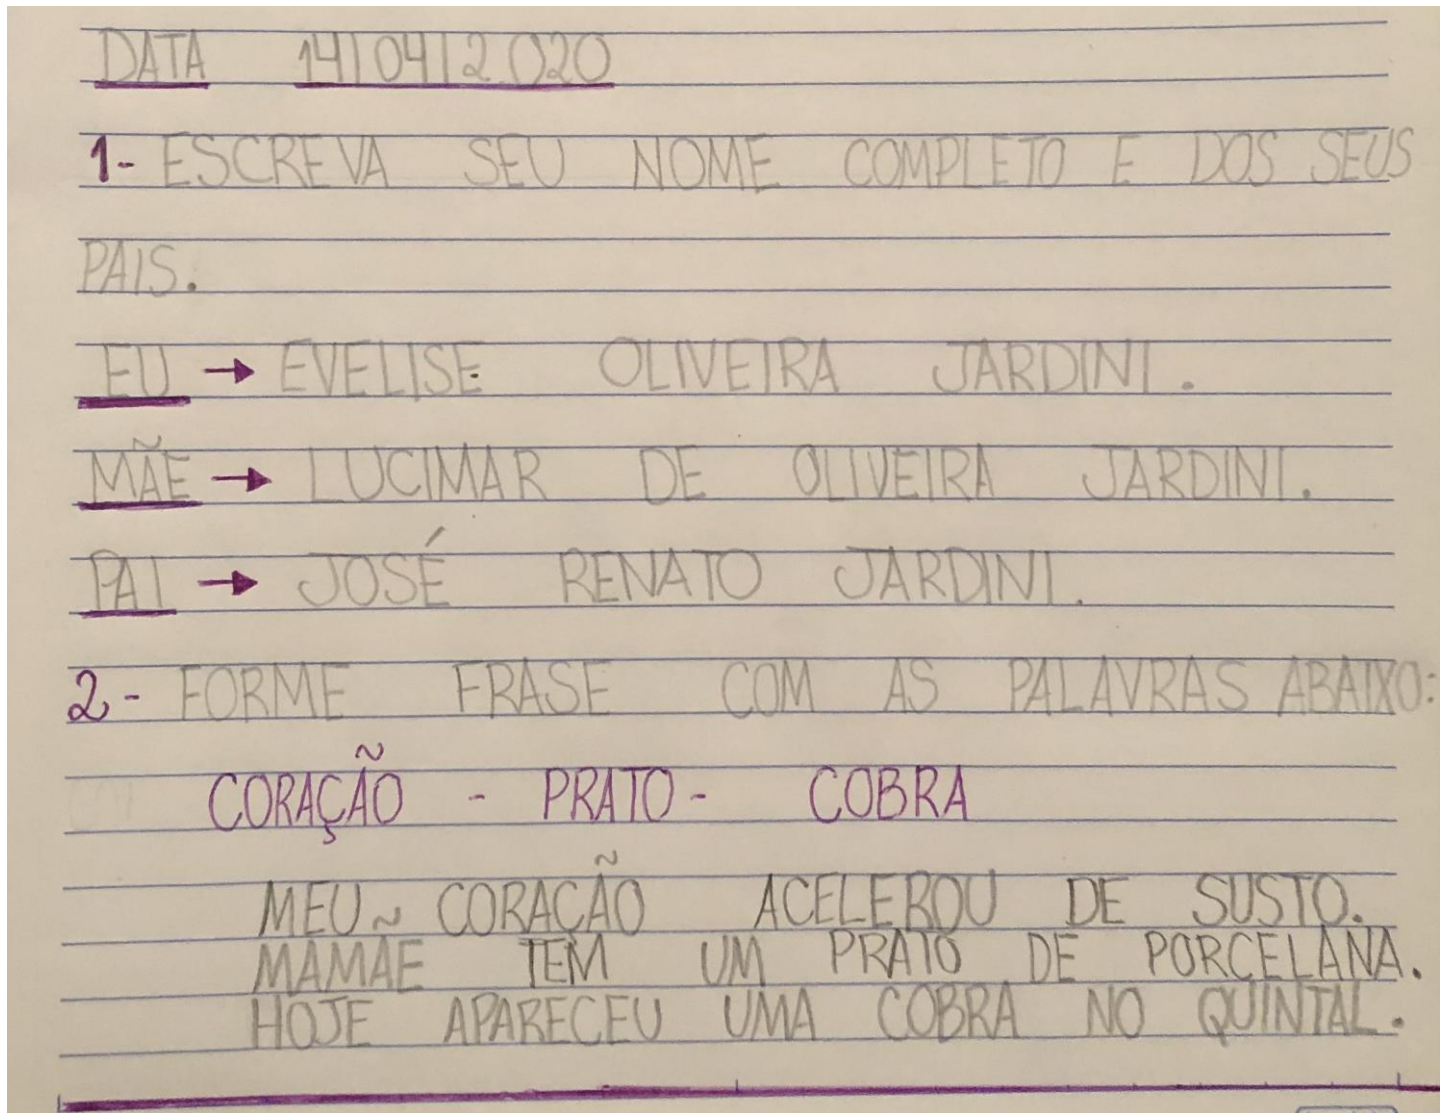 DATA 14/04/2020
1- ESCREVA SEU NOME COMPLETO E DOS SEUS
PAIS.
EU → EVELISE OLIVEIRA JARDINI.
MÃE → LUCIMAR DE OLIVEIRA JARDINI.
PAI → JOSÉ RENATO JARDINI.
2- FORME FRASE COM AS PALAVRAS ABAIXO:
CORAÇÃO - PRATO - COBRA
MEU CORAÇÃO ACELEROU DE SUSTO.
MAMÃE TEM UM PRATO DE PORCELANA.
HOJE APARECEU UMA COBRA NO QUINTAL.